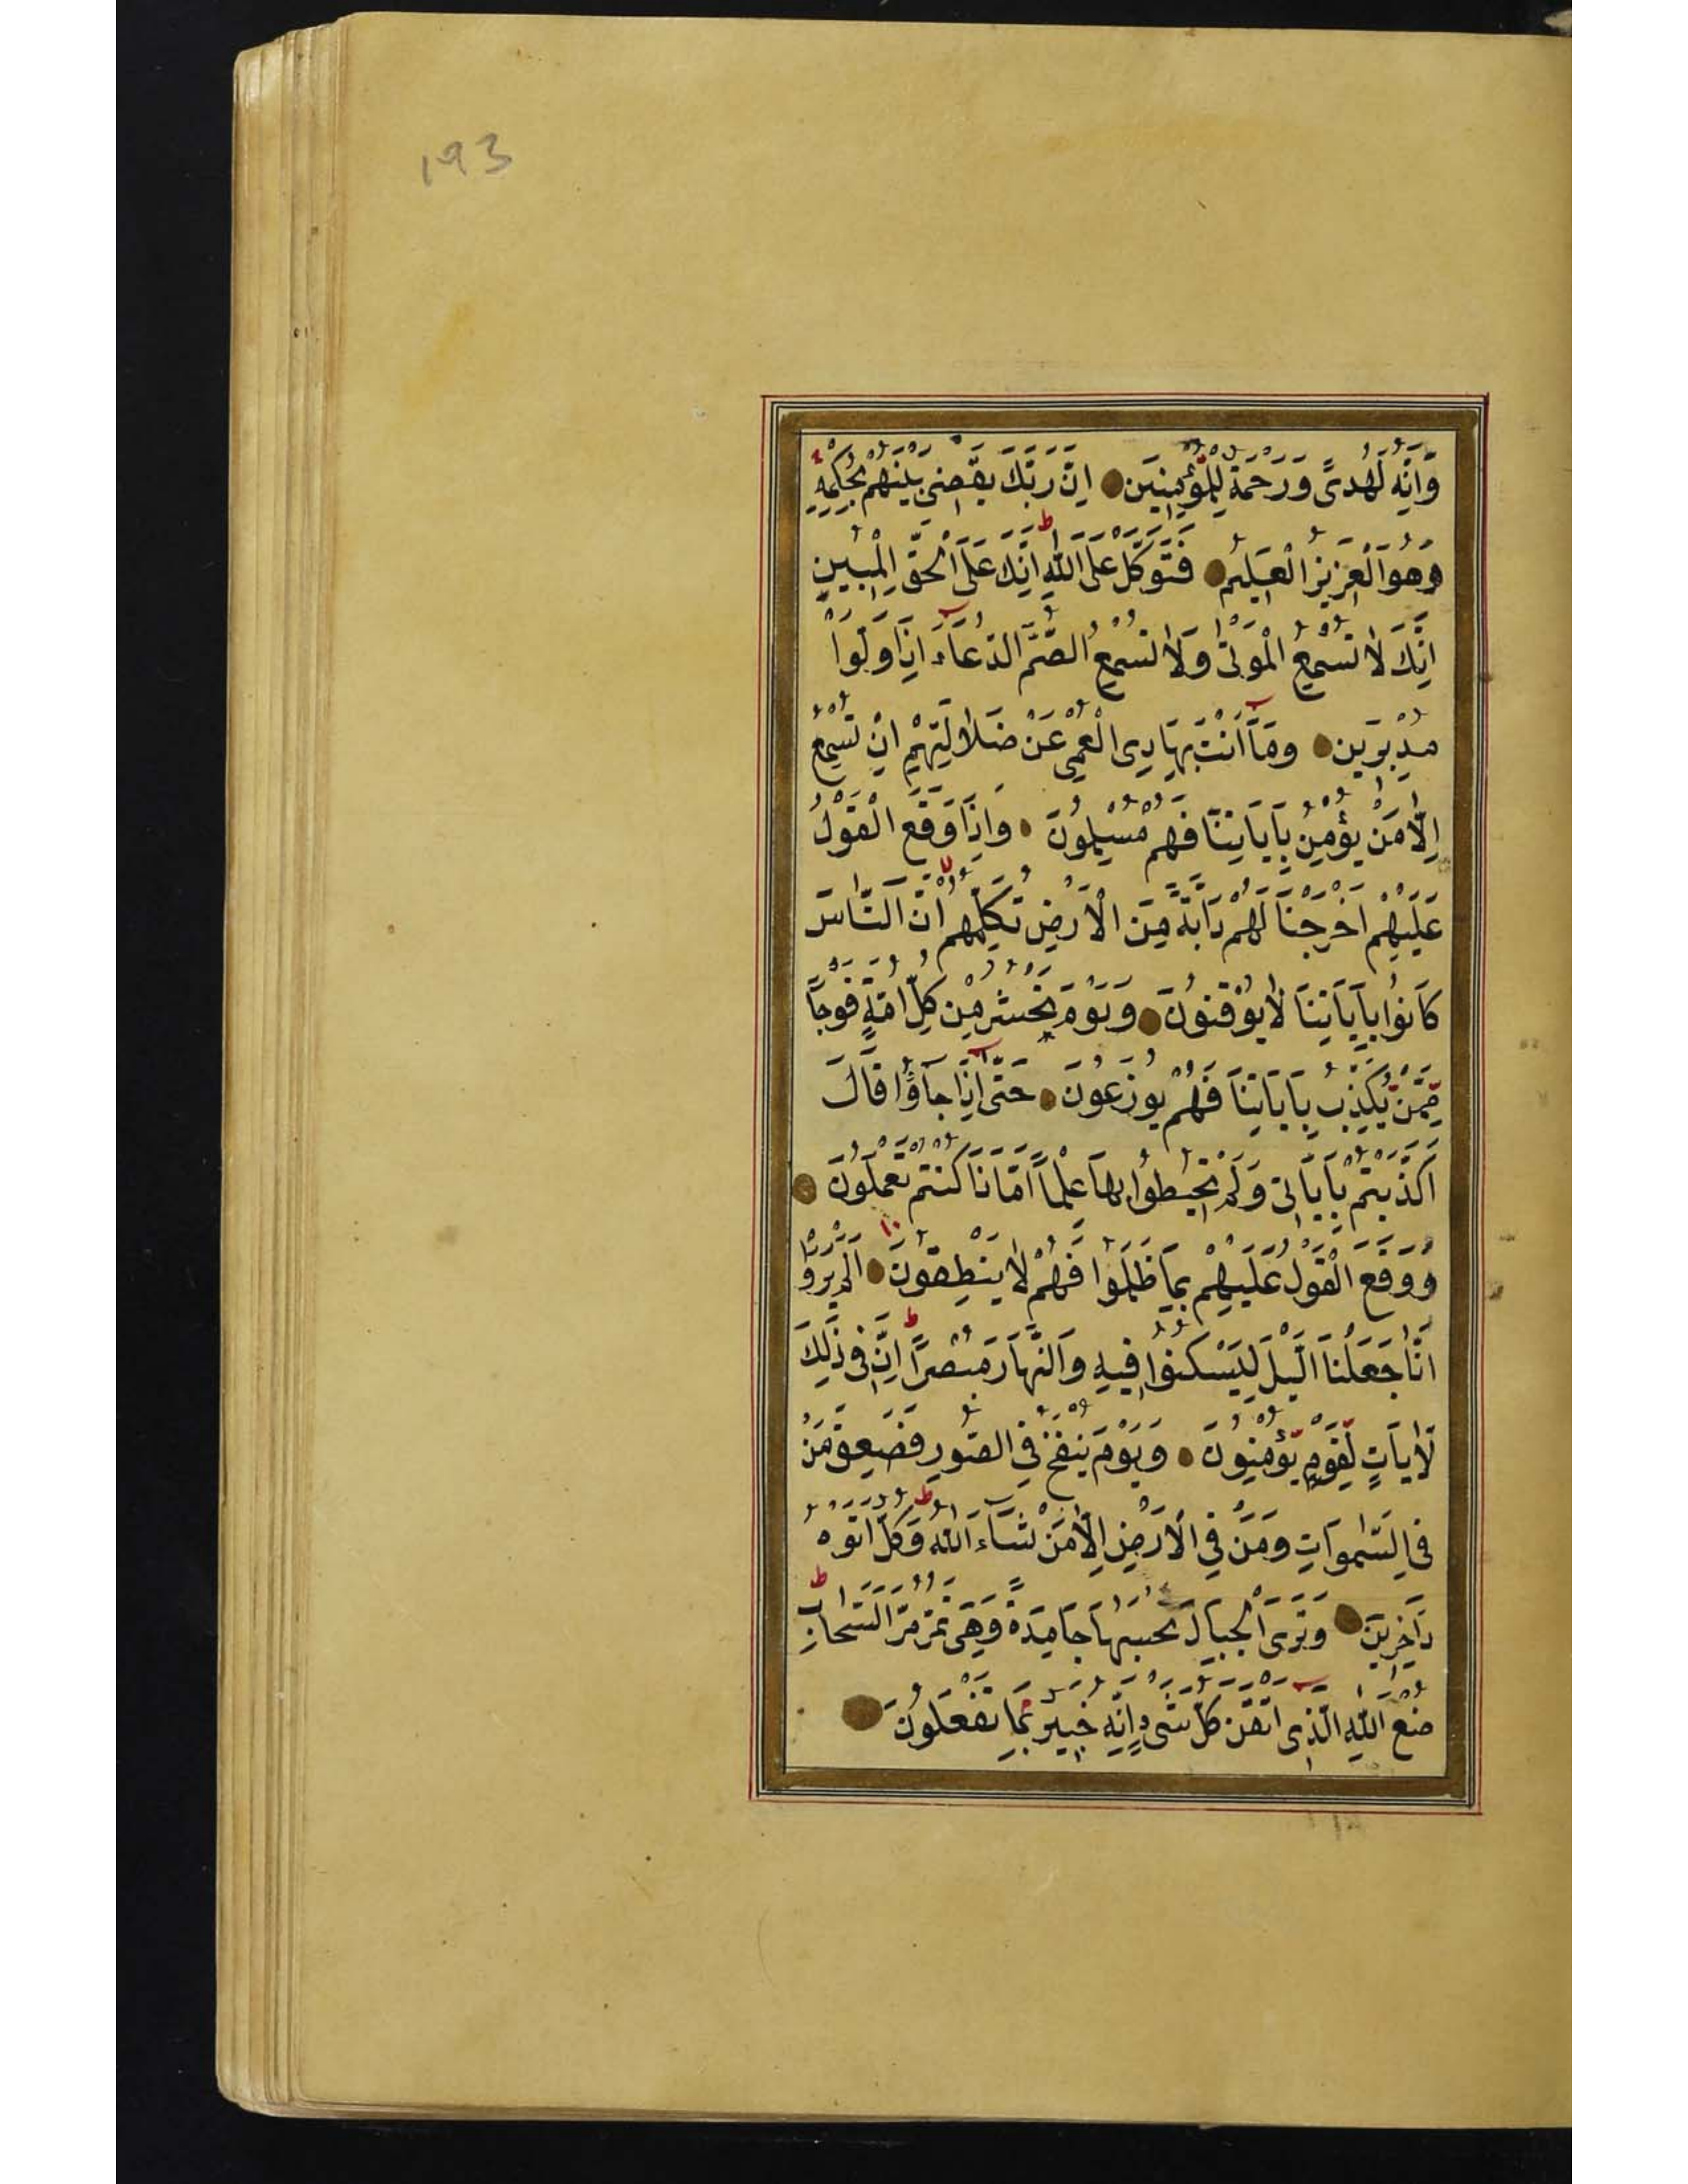 193
وَاِنَّهُ لَهُدًى وَرَحْمَةٌ لِلْمُؤْمِنِينَ اِنَّ رَبَّكَ يَقْضِى بَيْنَهُمْ بِحُكْمِهِ
وَهُوَ الْعَزِيزُ الْعَلِيمُ فَتَوَكَّلْ عَلَى اللّٰهِ اِنَّكَ عَلَى الْحَقِّ الْمُبِينِ
اِنَّكَ لَا تُسْمِعُ الْمَوْتٰى وَلَا تُسْمِعُ الصُّمَّ الدُّعَاءَ اِذَا وَلَّوْا
مُدْبِرِينَ وَمَا اَنْتَ بِهَادِى الْعُمْىِ عَنْ ضَلَالَتِهِمْ اِنْ تُسْمِعُ
اِلَّا مَنْ يُؤْمِنُ بِاٰيَاتِنَا فَهُمْ مُسْلِمُونَ وَاِذَا وَقَعَ الْقَوْلُ
عَلَيْهِمْ اَخْرَجْنَا لَهُمْ دَابَّةً مِنَ الْاَرْضِ تُكَلِّمُهُمْ اَنَّ النَّاسَ
كَانُوا بِاٰيَاتِنَا لَا يُوقِنُونَ وَيَوْمَ نَحْشُرُ مِنْ كُلِّ اُمَّةٍ فَوْجًا
مِمَّنْ يُكَذِّبُ بِاٰيَاتِنَا فَهُمْ يُوزَعُونَ حَتّٰى اِذَا جَاؤُا قَالَ
اَكَذَّبْتُمْ بِاٰيَاتِى وَلَمْ تُحِيطُوا بِهَا عِلْمًا اَمَّا ذَا كُنْتُمْ تَعْمَلُونَ
وَوَقَعَ الْقَوْلُ عَلَيْهِمْ بِمَا ظَلَمُوا فَهُمْ لَا يَنْطِقُونَ اَلَمْ يَرَوْا
اَنَّا جَعَلْنَا الَّيْلَ لِيَسْكُنُوا فِيهِ وَالنَّهَارَ مُبْصِرًا اِنَّ فِى ذٰلِكَ
لَاٰيَاتٍ لِقَوْمٍ يُؤْمِنُونَ وَيَوْمَ يُنْفَخُ فِى الصُّورِ فَصَعِقَ مَنْ
فِى السَّمٰوَاتِ وَمَنْ فِى الْاَرْضِ اِلَّا مَنْ شَاءَ اللّٰهُ وَكُلٌّ اَتَوْهُ
دَاخِرِينَ وَتَرَى الْجِبَالَ تَحْسَبُهَا جَامِدَةً وَهِىَ تَمُرُّ مَرَّ السَّحَابِ
صُنْعَ اللّٰهِ الَّذِى اَتْقَنَ كُلَّ شَىْءٍ اِنَّهُ خَبِيرٌ بِمَا تَفْعَلُونَ